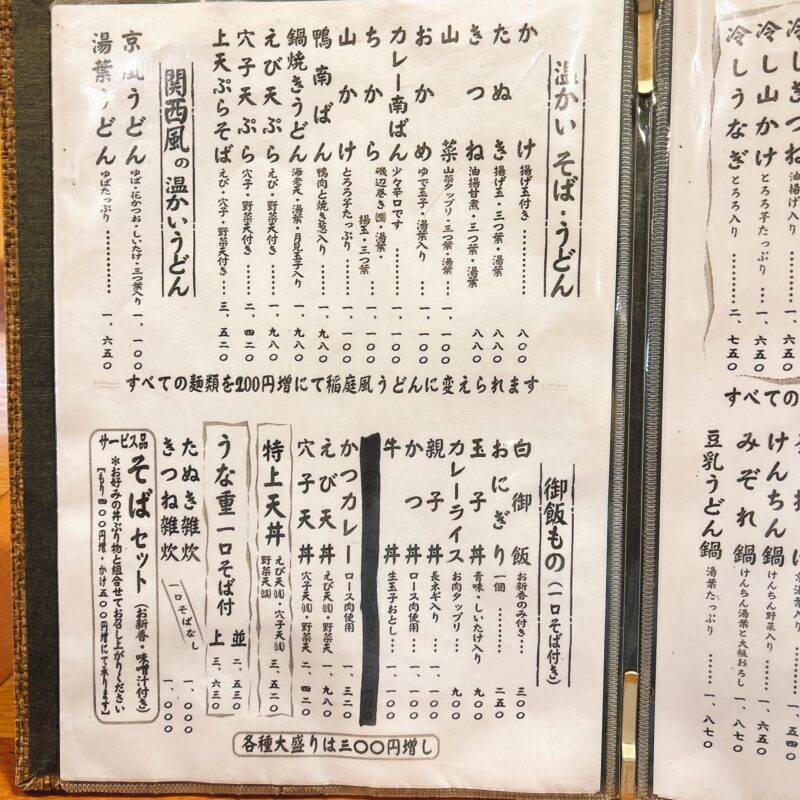 温かいそば・うどん
かけ 揚げ玉付き……… 八〇〇
たぬき 揚げ玉・三つ葉 八八〇
きつね 油揚甘煮・三つ葉・湯葉 八八〇
山菜 山菜タップリ・三つ葉・湯葉… 一、一〇〇
おかめ ゆで玉子・湯葉入り… 一、一〇〇
カレー南ばん 少々辛口です……… 一、一〇〇
ちから 磯辺巻き㈣・湯葉・揚玉・三つ葉 一、一〇〇
山かけ とろろ芋たっぷり… 一、一〇〇
鴨南ばん 鴨肉と焼き葱入り… 一、九八〇
鍋焼きうどん 海老天・湯葉・月見玉子入り 一、九八〇
えび天ぷら えび・野菜天付き… 一、九八〇
穴子天ぷら 穴子・野菜天付き… 二、四二〇
上天ぷらそば えび・穴子・野菜天付き… 三、五二〇
関西風の温かいうどん
京風うどん ゆば・花かつお・しいたけ・三つ葉入り 一、一〇〇
湯葉うどん ゆばたっぷり……… 一、六五〇
すべての麺類を200円増にて稲庭風うどんに変えられます
御飯もの(一口そば付き)
白御飯 お新香のみ付き…… 三〇〇
おにぎり 一個……… 二五〇
玉子丼 青味・しいたけ入り 九〇〇
カレーライス お肉タップリ… 九〇〇
親子丼 長ネギ入り 一、一〇〇
かつ丼 ロース肉使用 一、一〇〇
牛丼 生玉子おとし… 一、一〇〇
かつカレー ロース肉使用 一、三二〇
えび天丼 えび天㈣・野菜天 一、九八〇
穴子天丼 穴子天㈣・野菜天 二、四二〇
特上天丼 えび天㈣・穴子天㈣ 野菜天㈣ 三、五二〇
うな重一口そば付 並 二、五三〇
上 三、六三〇
たぬき雑炊 一、〇〇〇
きつね雑炊 一、〇〇〇
一口そばなし
サービス品 そばセット(お新香・味噌汁付き)
※お好みの丼ぶり物と組合せてお召し上がりください
【もり四〇〇円増・かけ五〇〇円増にて承ります】
各種大盛りは三〇〇円増し
冷しきつね 油揚げ
冷し山かけ とろろ芋たっぷり … 一、六五〇
冷しうなぎ とろろ入り …… 二、七五〇
すべての
けんちん鍋 けんちん野菜入り… 一、六五〇
みぞれ鍋 けんちん湯葉と大根おろし 一、八七〇
豆乳うどん鍋 湯葉たっぷり…… 一、八七〇